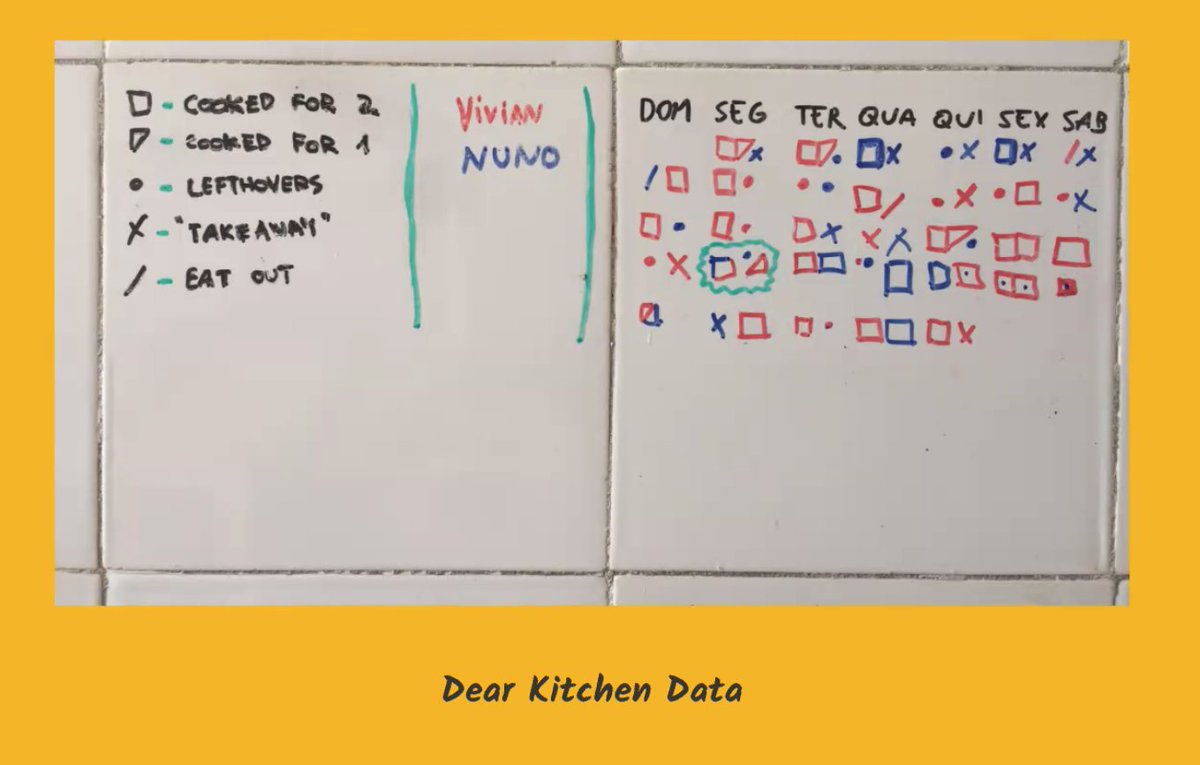 - COOKED FOR 2
- COOKED FOR 1
- LEFTHOVERS
X - "TAKEAWAY"
/ - EAT OUT
Vivian
NUNO
DOM SEG TER QUA QUI SEX SAB
Dear Kitchen Data